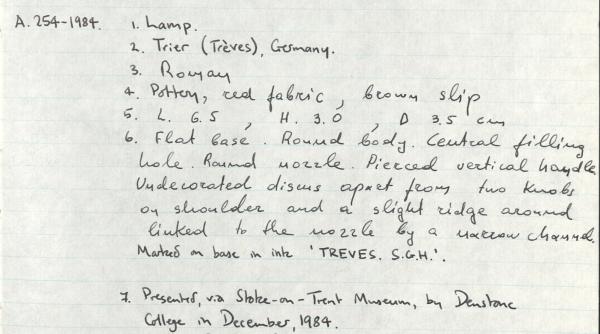 A.254-1984. 1. Lamp.
2. Trier (Trèves), Germany.
3. Roman
4. Pottery, red fabric, brown slip
5. L. 6.5 , H. 3.0 , D 3.5 cm
6. Flat base. Round body. Central filling
hole. Round nozzle. Pierced vertical handle.
Undecorated discus apart from two knobs
on shoulder and a slight ridge around
linked to the nozzle by a narrow channel.
Marked on base in ink 'TREVES. S.G.H.'.
7. Presented, via Stoke-on-Trent Museum, by Denstone
College in December, 1984.